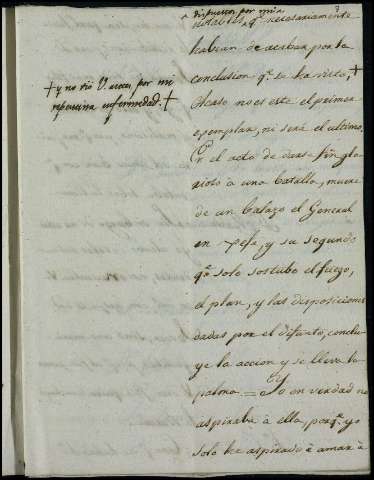 ^dispuestos por mi^
notables, qᵉ necesariamᵗᵉ
habian de acabar por la
conclusion qᵉ se ha visto, +
Acaso no es este el primer
exemplar, ni será el ultimo.
En el acto de darse fin glo
rioso à una batalla, muere
de un balazo el General
en Xefe, y su segundo
qᵉ solo sostubo el fuego,
el plan, y las disposiciones
dadas por el difunto, conclu
ye la accion y se lleva la
palma. = Yo en verdad no
aspiraba à ella, porqᵉ yo
solo he aspirado à amar à
+ y no vió V. por mi
repentina enfermedad. +